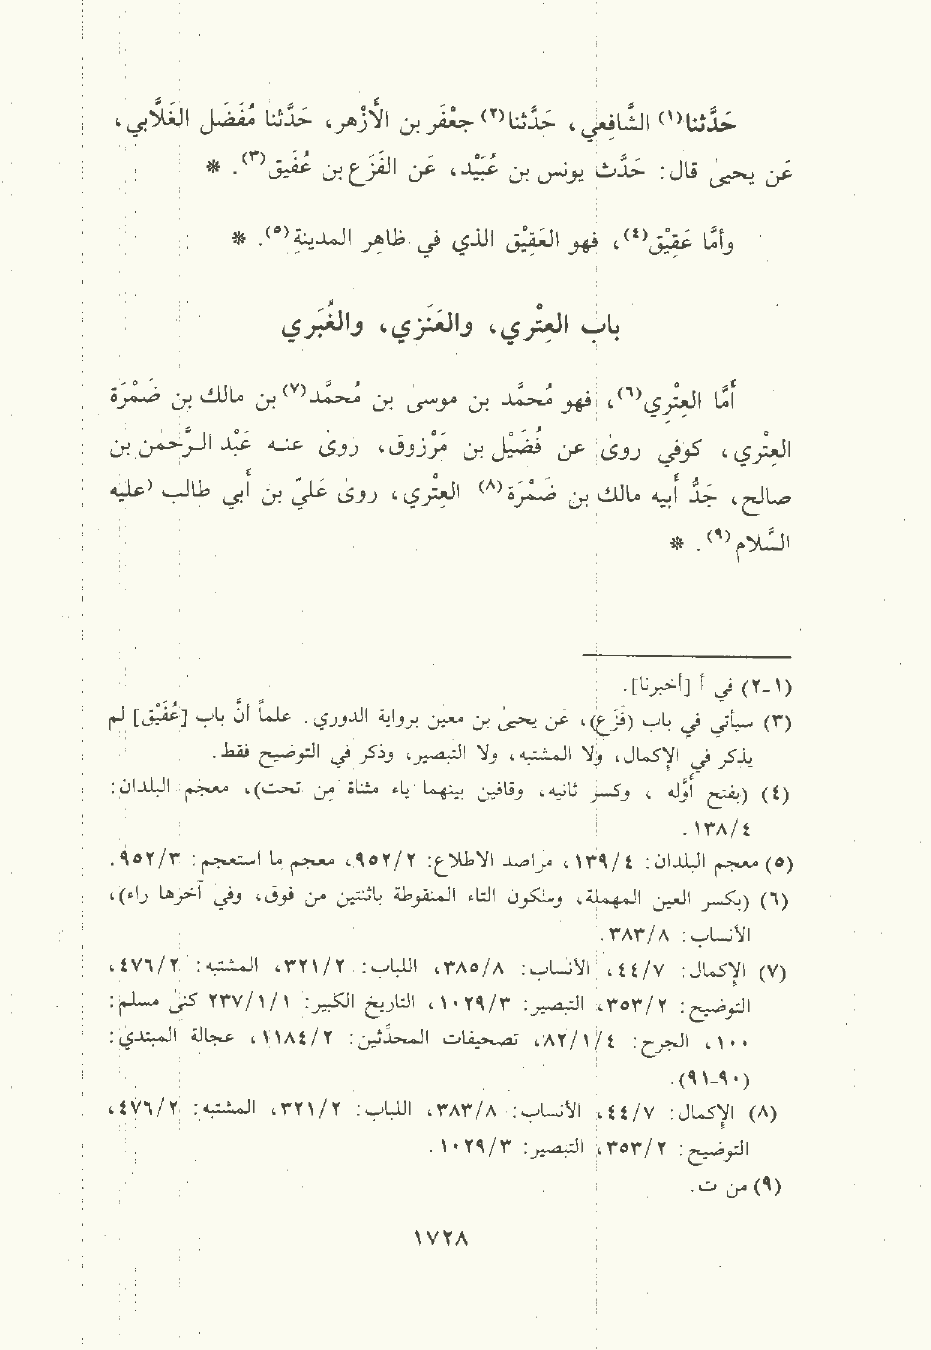 حَدَّثنا(١) الشَّافِعي، حَدَّثنا(٢) جعْفَر بن الأَزْهر، حَدَّثنا مُفَضَل الغَلَّابي،
عَن يحيىٰ قال: حَدَّث يونس بن عُبَيْد، عَن الفَزَع بن عُفَيق(٣). *
وأمَّا عَقِيْق(٤)، فهو العَقِيْق الذي في ظاهِر المدينةِ(٥). *
باب العِتْري، والعَنَزي، والغُبَري
أَمَّا العِتْرِي(٦)، فهو مُحمَّد بن موسىٰ بن مُحمَّد(٧) بن مالك بن ضَمْرَة
العِتْري، كوفي روىٰ عن فُضَيْل بن مَرْزوق، روىٰ عنه عَبْد الرَّحمٰن بن
صالح، جَدُّ أَبيه مالك بن ضَمْرَة(٨) العِتْري، روىٰ عَليّ بن أَبي طالب (عليه
السَّلام(٩). *
(١-٢) في أ [أخبرنا].
(٣) سيأتي في باب (فَزَع)، عن يحيىٰ بن معين برواية الدوري. علماً أنَّ باب [عُفَيْق] لم
يذكر في الإكمال، ولا المشتبه، ولا التبصير، وذكر في التوضيح فقط.
(٤) (بفتح أوَّله ، وكسر ثانيه، وقافين بينهما ياء مثناة مِن تحت)، معجم البلدان:
٤/١٣٨.
(٥) معجم البلدان: ٤/١٣٩، مراصد الاطلاع: ٢/٩٥٢، معجم ما استعجم: ٣/٩٥٢.
(٦) (بكسر العين المهملة، وسكون التاء المنقوطة باثنتين من فوق، وفي آخرها راء)،
الأنساب: ٨/٣٨٣.
(٧) الإكمال: ٧/٤٤، الأنساب: ٨/٣٨٥، اللباب: ٢/٣٢١، المشتبه: ٢/٤٧٦،
التوضيح: ٢/٣٥٣، التبصير: ٣/١٠٢٩، التاريخ الكبير: ١/١/٢٣٧ كنىٰ مسلم:
١٠٠، الجرح: ٤/١/٨٢، تصحيفات المحدِّثين: ٢/١١٨٤، عجالة المبتدي:
(٩٠-٩١).
(٨) الإكمال: ٧/٤٤، الأنساب: ٨/٣٨٣، اللباب: ٢/٣٢١، المشتبه: ٢/٤٧٦،
التوضيح: ٢/٣٥٣، التبصير: ٣/١٠٢٩.
(٩) من ت.
١٧٢٨